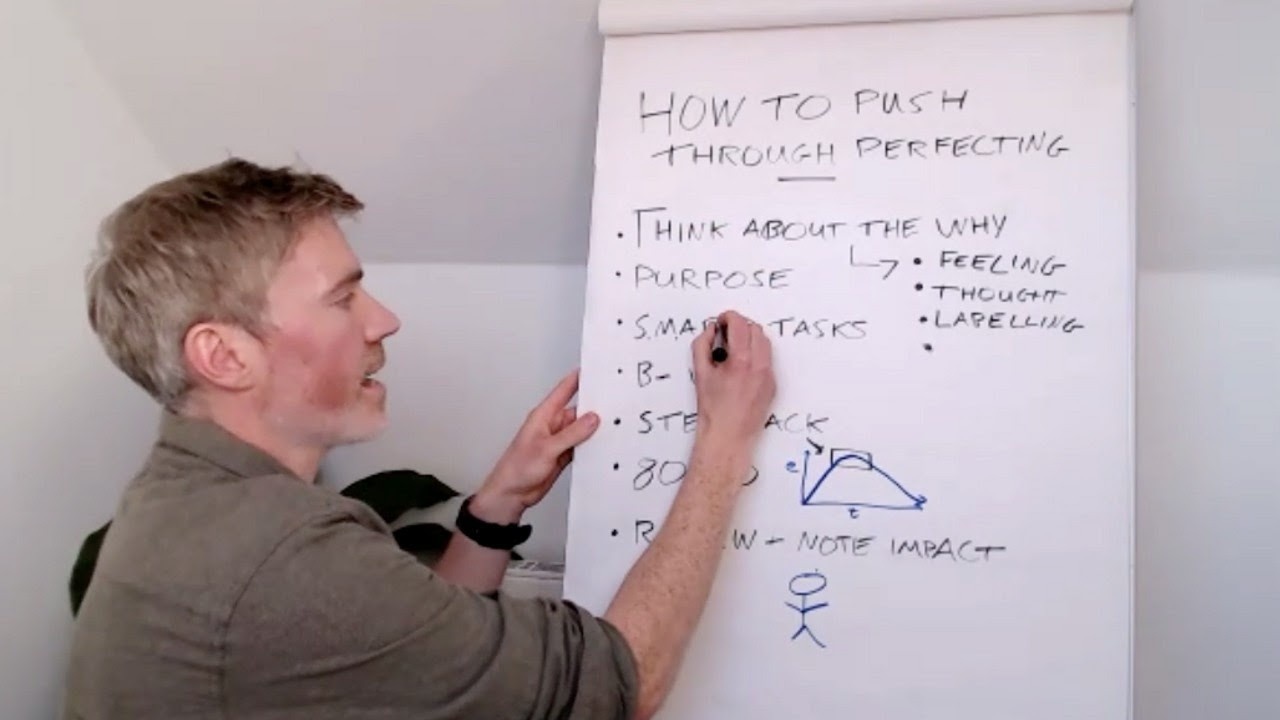 HOW TO PUSH
THROUGH PERFECTING
• THINK ABOUT THE WHY
• FEELING
• THOUGHT
• LABELLING
•
• PURPOSE
• TASKS
• B-
•
•
e
t
• - NOTE IMPACT